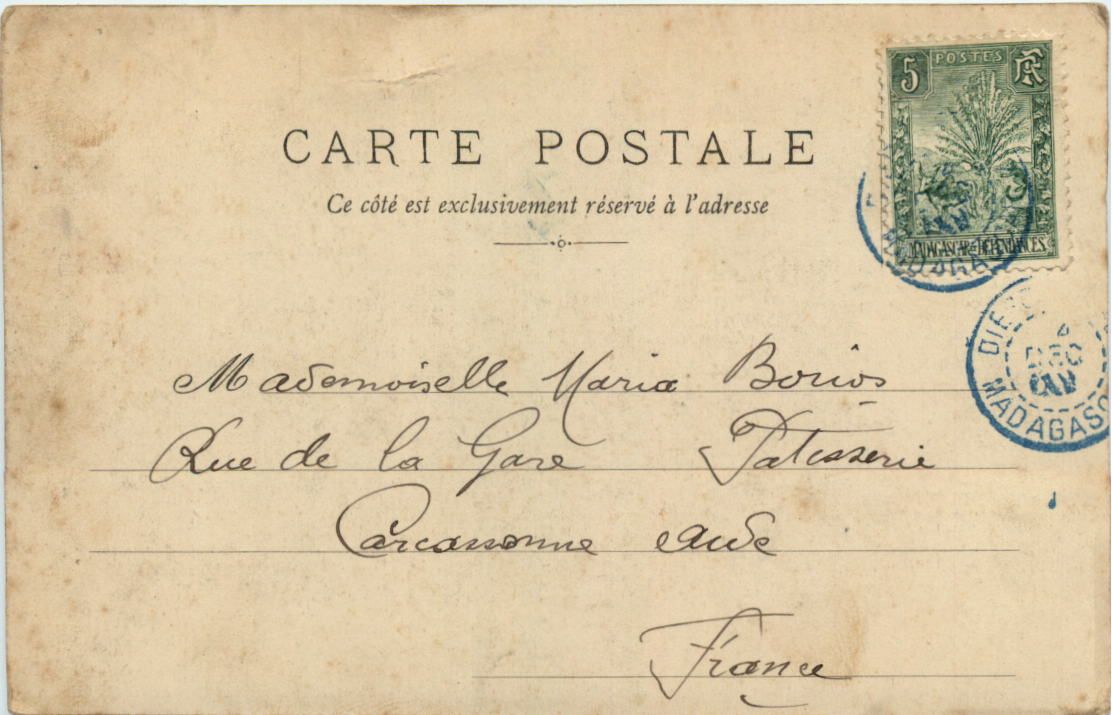 5 POSTES RF
CARTE POSTALE
Ce côté est exclusivement réservé à l'adresse
MADAGASCAR & DÉPENDANCES
MADAGASC
DIE
4
DEC
MADAGASC
Mademoiselle Maria Borios
Rue de la Gare Patisserie
Carcassonne Aude
France